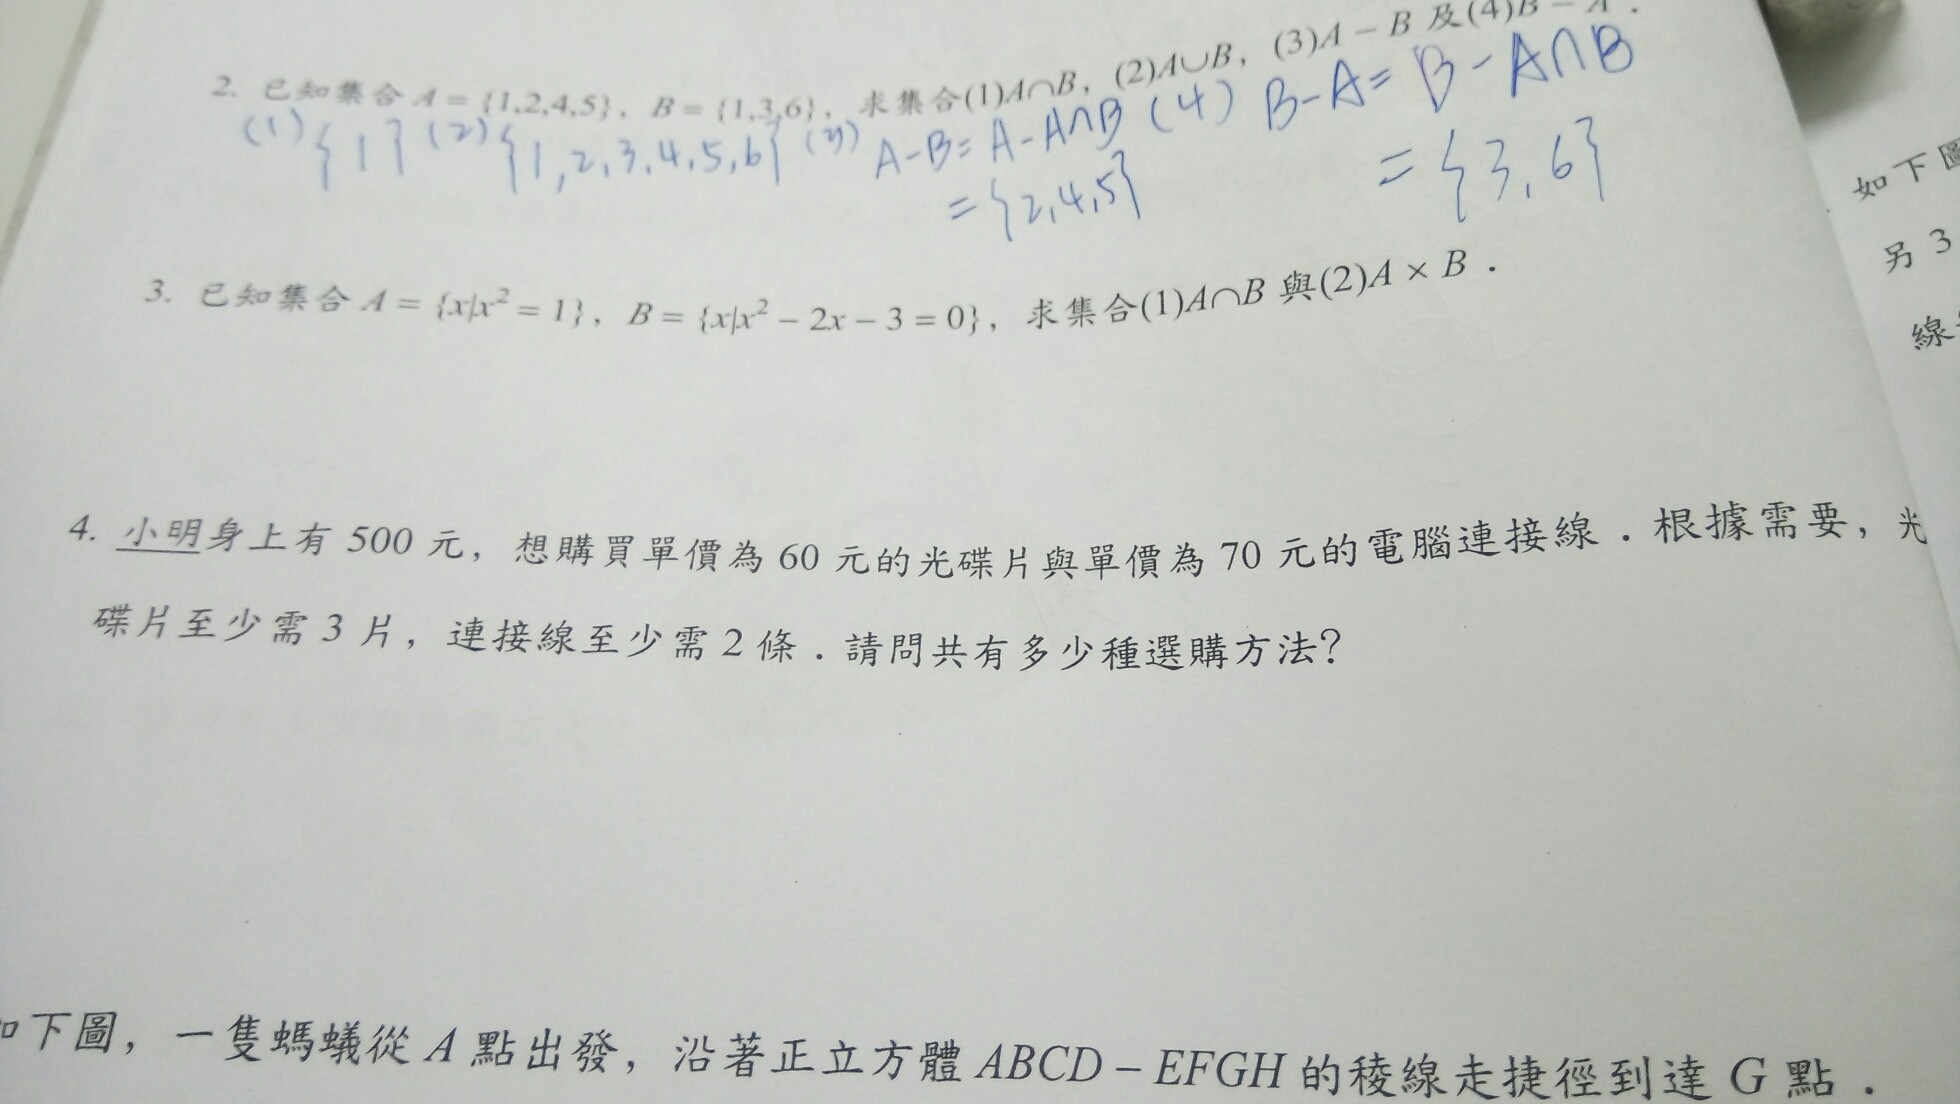 2. 已知集合 A = {1,2,4,5}, B = {1,3,6}, 求集合(1)A∩B, (2)A∪B, (3)A − B 及(4)B − A.
(1) {1} (2) {1,2,3,4,5,6} (3) A-B= A-A∩B (4) B-A= B-A∩B
={2,4,5} ={3,6}
3. 已知集合 A = {x|x² = 1}, B = {x|x² − 2x − 3 = 0}, 求集合(1)A∩B 與(2)A × B.
4. 小明身上有 500 元, 想購買單價為 60 元的光碟片與單價為 70 元的電腦連接線. 根據需要, 光
碟片至少需 3 片, 連接線至少需 2 條. 請問共有多少種選購方法?
下圖, 一隻螞蟻從 A 點出發, 沿著正立方體 ABCD − EFGH 的稜線走捷徑到達 G 點.
如下圖
另 3
線